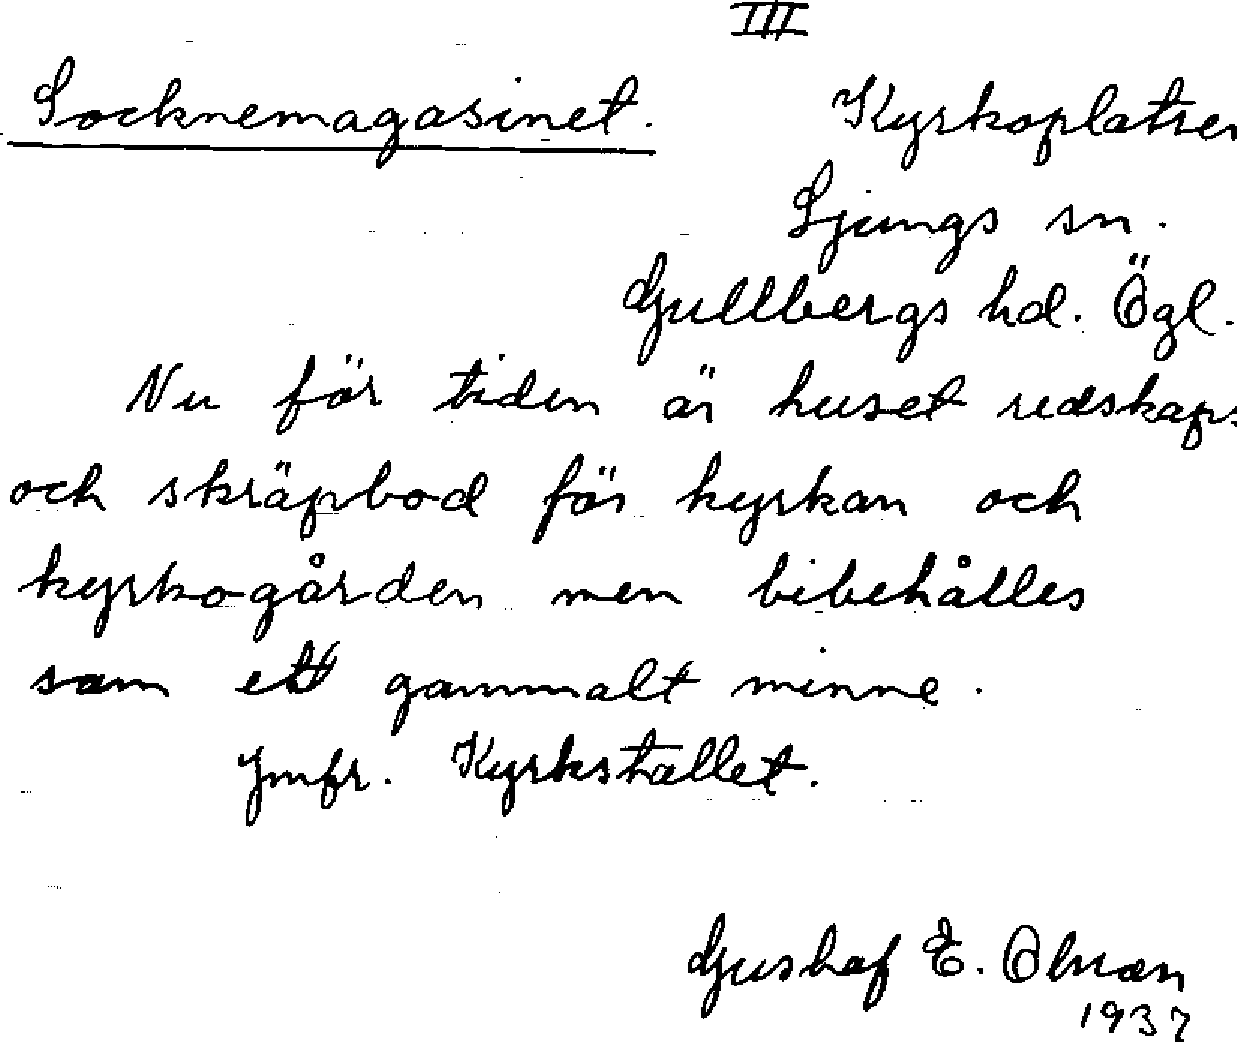 III
Socknemagasinet. Kyrkoplatsen
Ljungs sn.
Gullbergs hd. Ögl.
Nu för tiden är huset redskaps
och skräpbod för kyrkan och
kyrkogården men bibehålles
som ett gammalt minne.
Jmfr. Kyrkstallet.
Gustaf E. Olman
1937